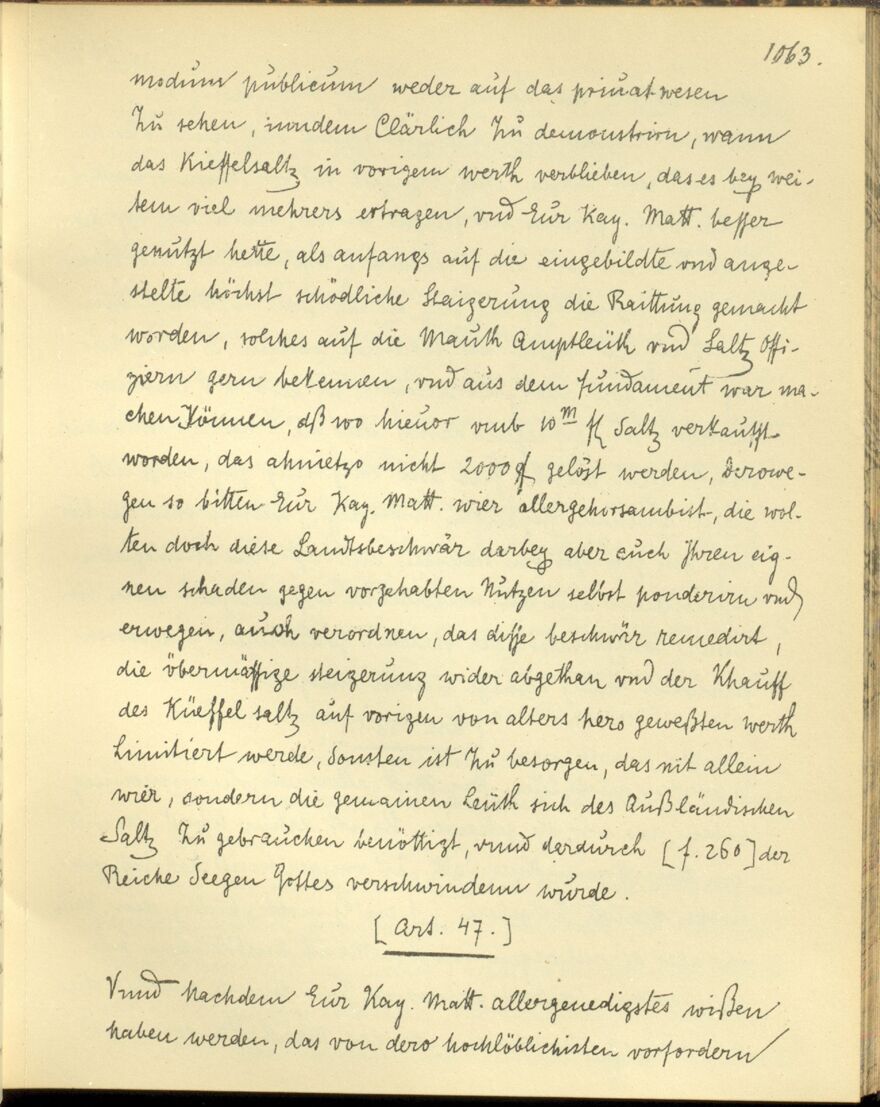 1063.
modum publicum weder auf das priuat wesen
Zu sehen, sondern Clärlich Zu demonstrirn, wann
das Kieffelsaltz in vorigem werth verblieben, das es bey wei-
tem viel mehrers ertragen, vnd Eur Kay. Matt. besser
genutzt hette, als anfangs auf die eingebildte vnd ange-
stelte höchst schödliche Staigerung die Raittung gemacht
worden, solches auf die Mauth Amptleüth vnd Saltz Offi-
ziern gern bekennen, vnd aus dem fundament war ma-
chen Können, dß wo hieuor vmb 10 m fl Saltz verkaufft
worden, das ahnietzo nicht 2000 fl gelöst werden, Derowe-
gen so bitten Eur Kay. Matt. wier allergehorsambist, die wol-
ten doch diese Landtsbeschwär darbey aber auch Jhren eig-
nen schaden gegen vorgehabten Nutzen selbst ponderirn vnd
erwegen, auch verordnen, das disse beschwär remedirt,
die übermässige steigerung wider abgethan vnd der Khauff
des Küeffel saltz auf vorigen von alters hero geweßten werth
Limitiert werde, Sonsten ist Zu besorgen, das nit allein
wier, sondern die gemainen Leüth sich des Außländischen
Saltz Zu gebrauchen benöttigt, vnnd dardurch [f. 260] der
Reiche Seegen Gottes verschwindenn wurde.
[Art. 47.]
Vnnd Nachdem Eur Kay. Matt. allergenedigstes wißen
haben werden, das von dero hochlöblichisten vorfordern